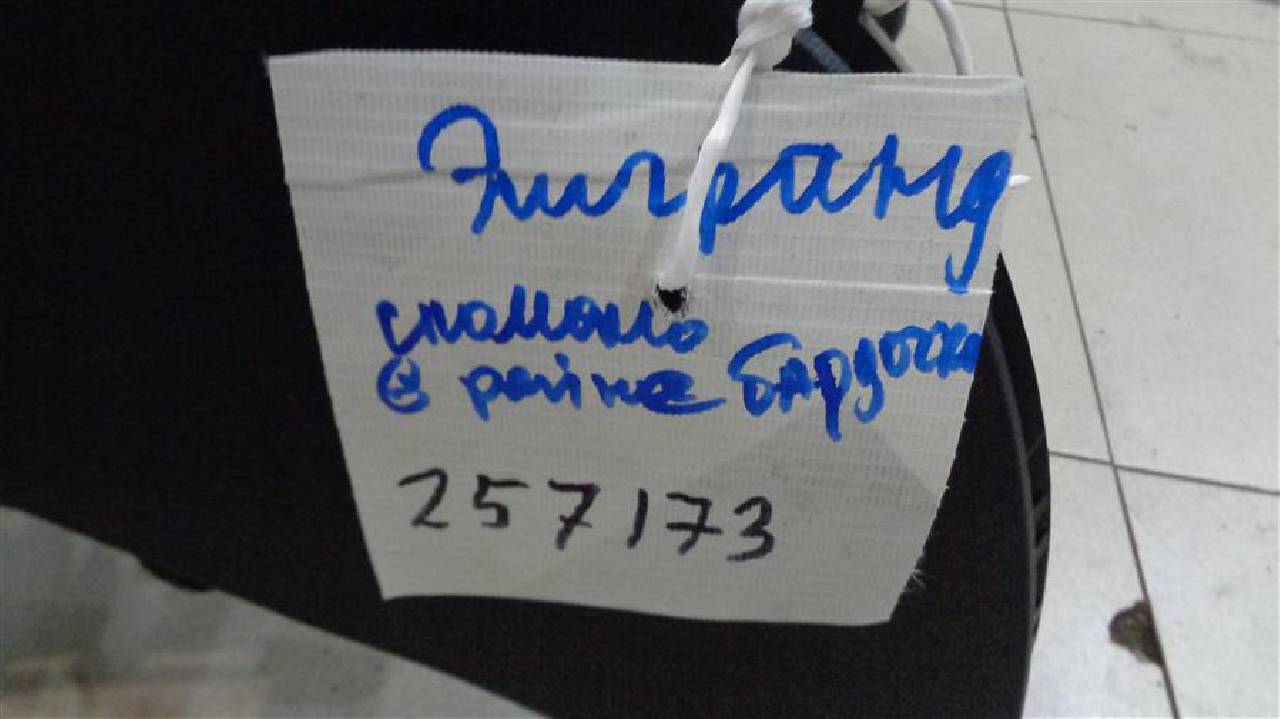 Эигранд
сломано
в районе бардочка
257173